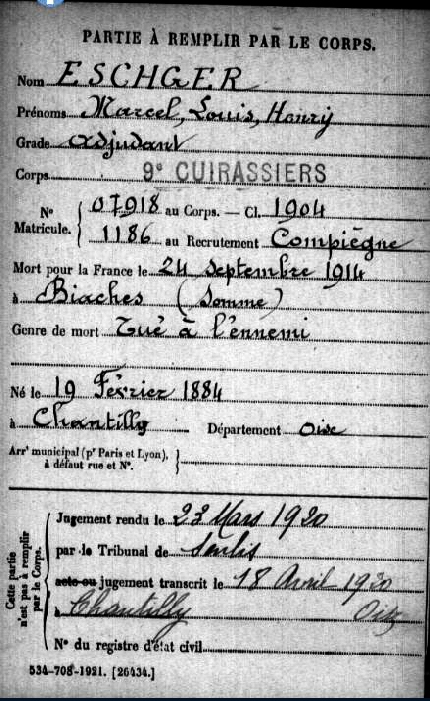 PARTIE À REMPLIR PAR LE CORPS.
Nom ESCHGER
Prénoms Marcel, Louis, Henry
Grade adjudant
Corps 9e CUIRASSIERS
N° Matricule. 07918 au Corps. — Cl. 1904
1186 au Recrutement Compiègne
Mort pour la France le 24 septembre 1914
à Biaches (Somme)
Genre de mort Tué à l'ennemi
Né le 19 Février 1884
à Chantilly Département Oise
Arrt municipal (pr Paris et Lyon), à défaut rue et N°.
Cette partie n'est pas à remplir par le Corps.
Jugement rendu le 23 Mars 1920
par le Tribunal de Senlis
acte ou jugement transcrit le 18 Avril 1920
à Chantilly Oise
N° du registre d'état civil
534-708-1921. [26434.]